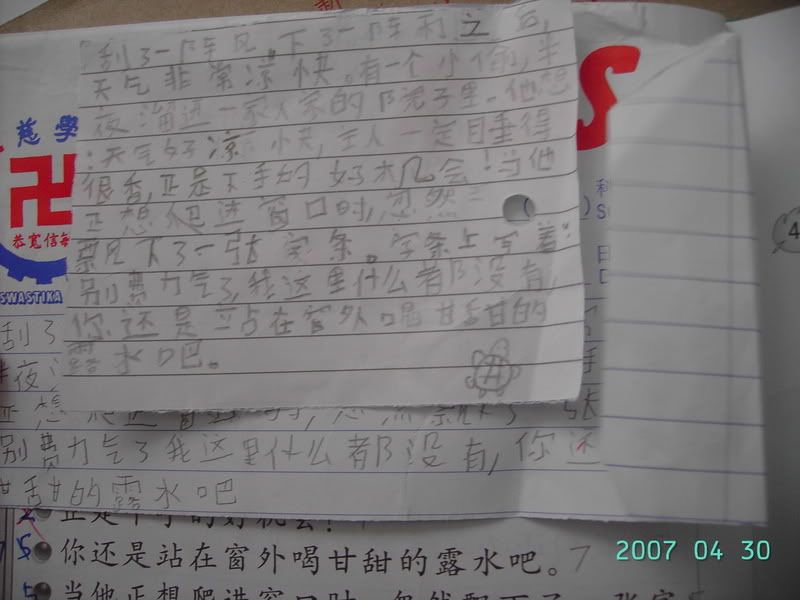 刮了一阵风,下了一阵雨之后,
天气非常凉快。有一个小偷,半
夜溜进一家人家的院子里。他想
:天气好凉快,主人一定睡得
很香,正是下手的好机会!当他
正想爬进窗口时,忽然
飘下了一张字条。字条上写着:
别费力气了,我这里什么都没有,
你还是站在窗外喝甘甜的
露水吧。
慈學
卍
恭寬信敏
SWASTIKA
S
刮了
半夜
正想爬进窗口时,忽然飘下了一张
别费力气了我这里什么都没有,你还
甘甜的露水吧
正是下手的好机会!
你还是站在窗外喝甘甜的露水吧。7
当他正想爬进窗口时,忽然飘下了一张字
4
2007 04 30